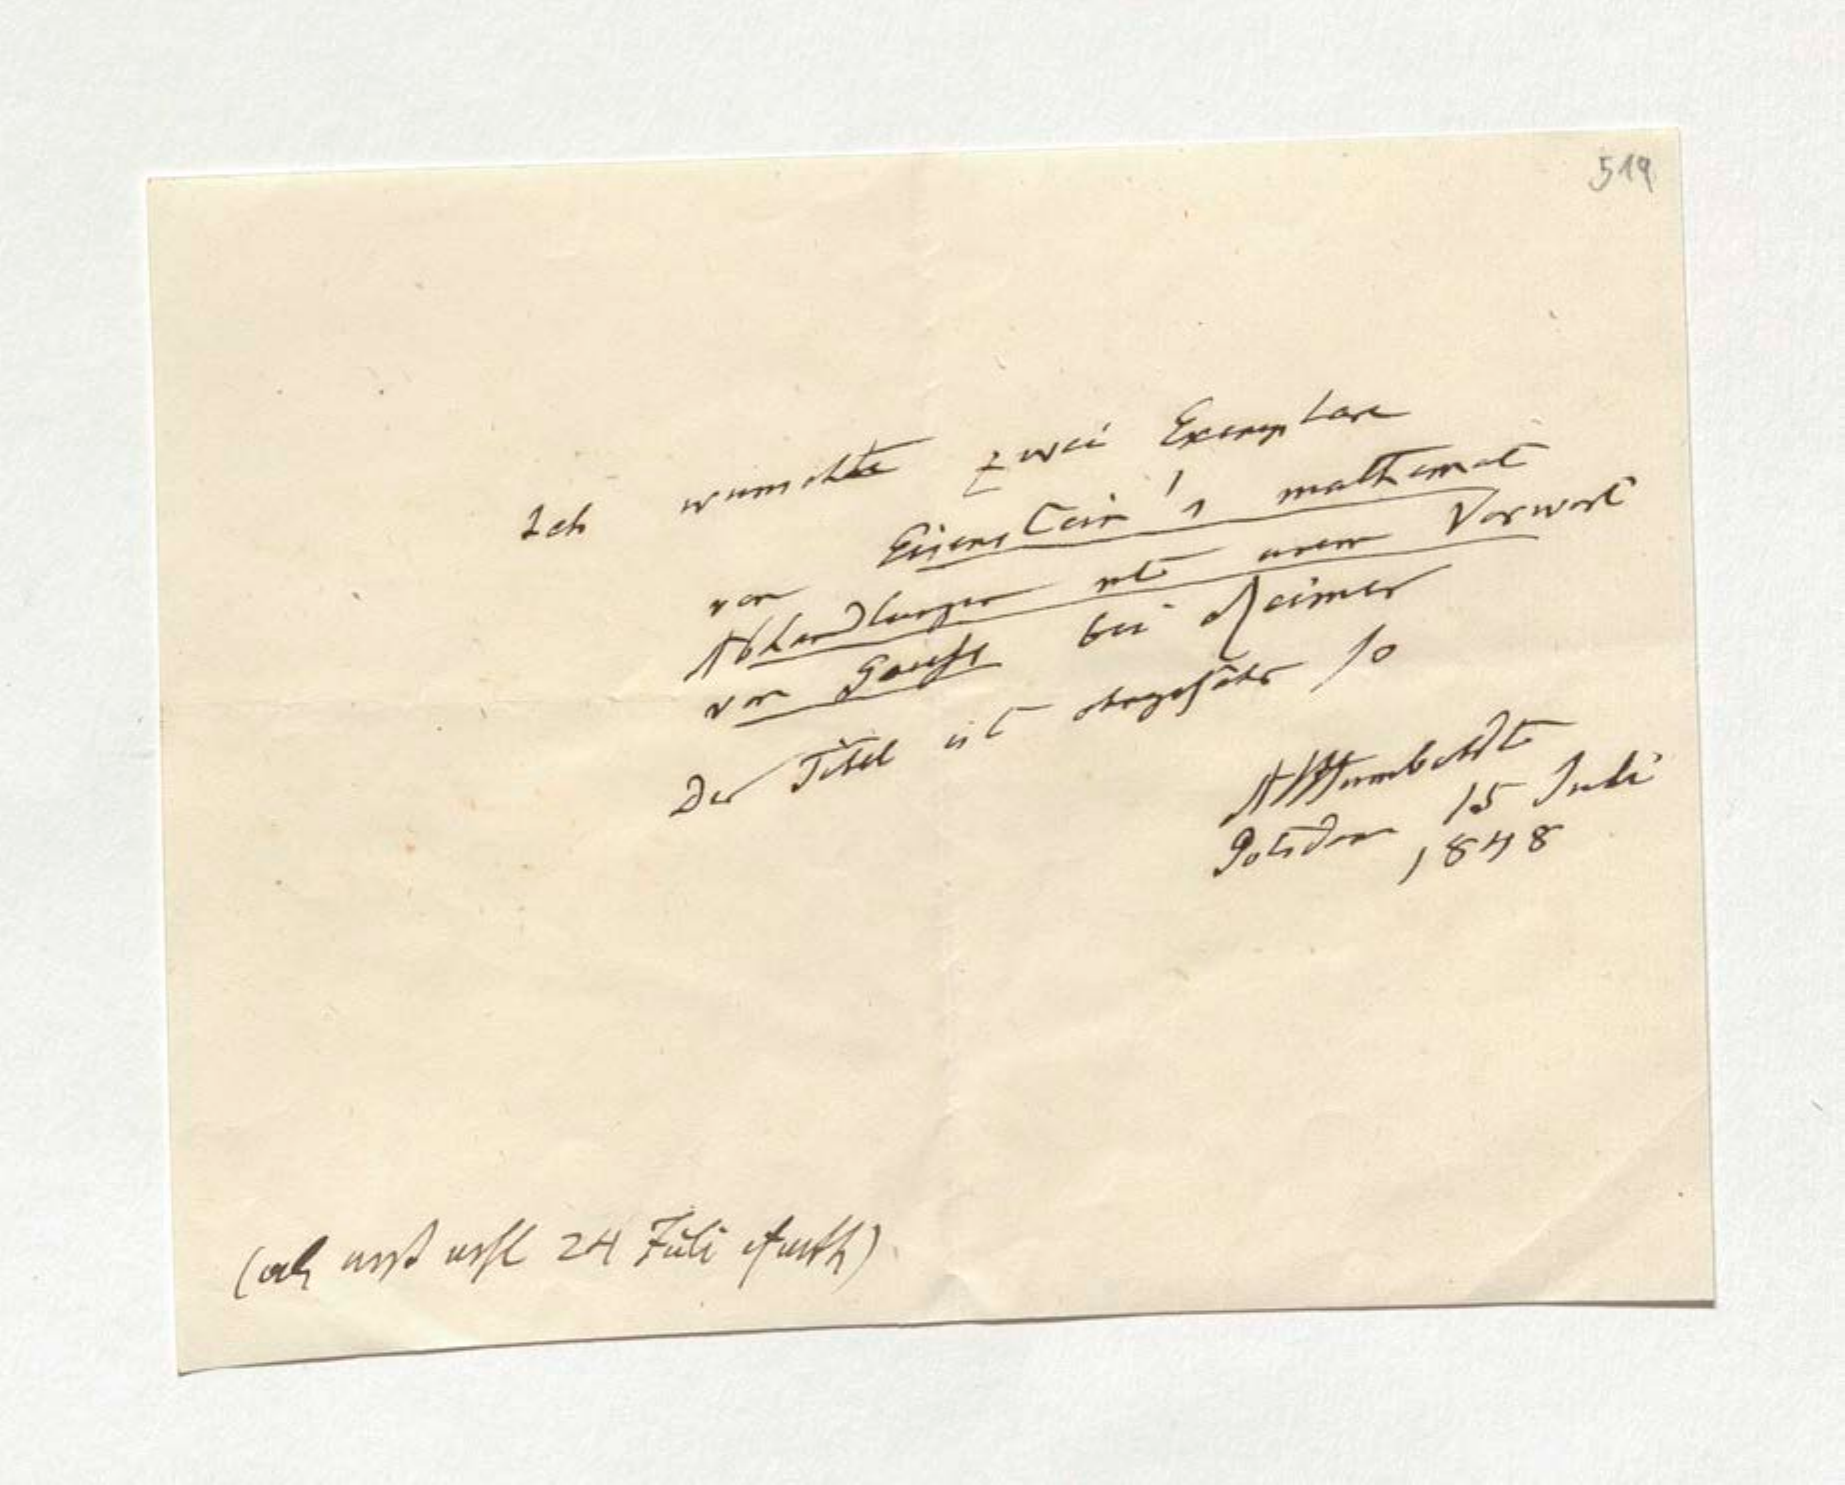 519
Ich wunschte zwei Exemplare
von Eisenstein's mathemat
Abhandlungen mt einem Vorwort
von Gauss bei Reimer
Der Titel ist ohngefähr so
AvHumboldt
Potsdam 15 Juli
1848
24 Juli